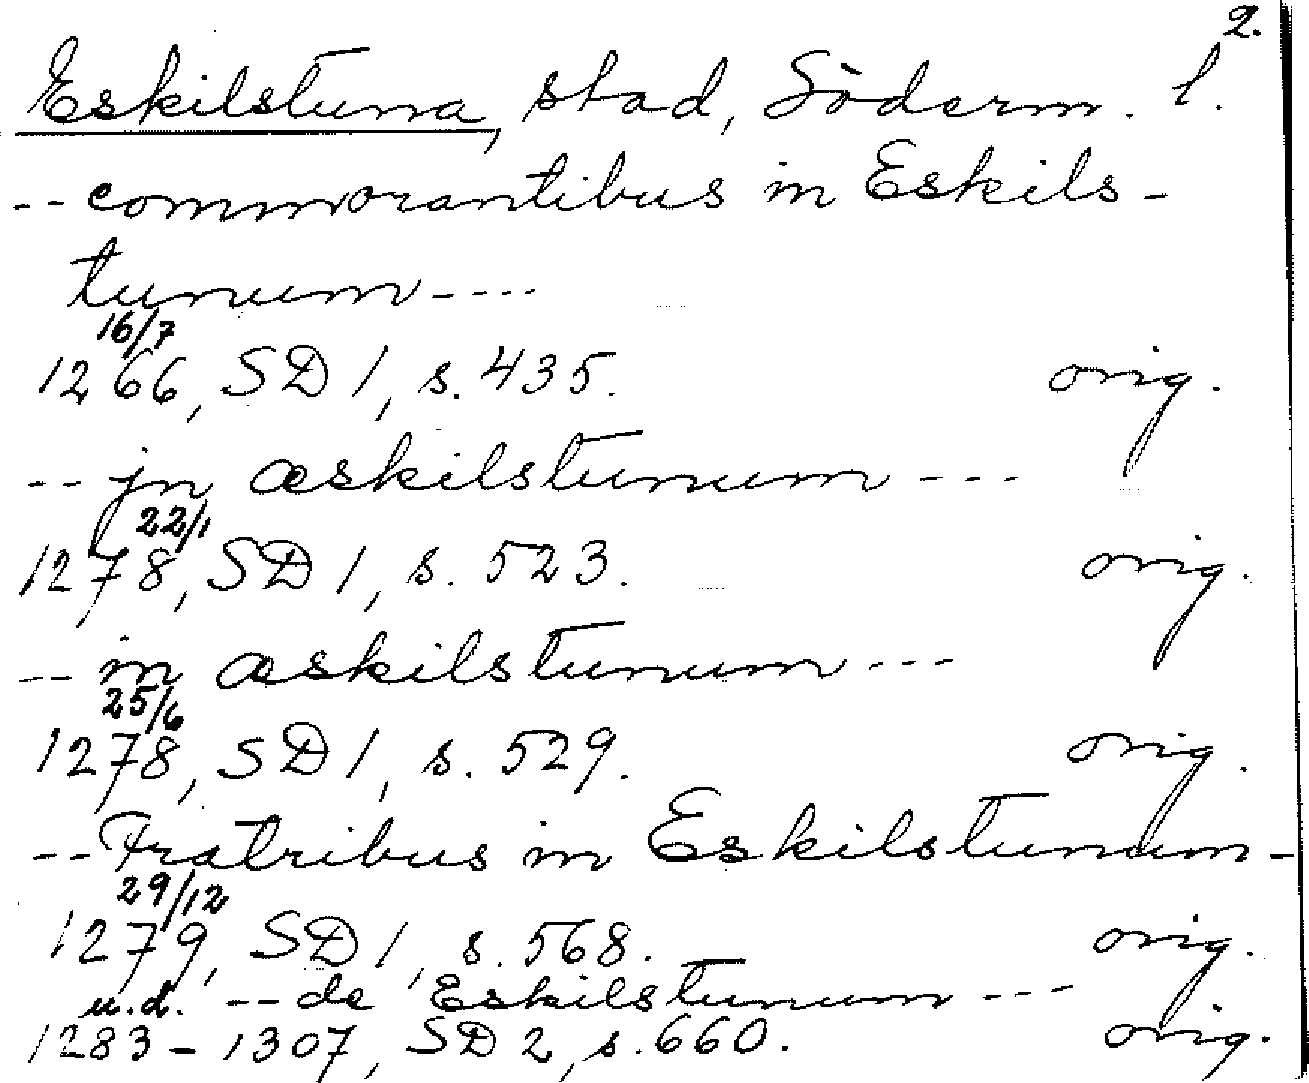 2.
Eskilstuna, stad, Söderm. l.
-- commorantibus in Eskils-
tunum ----
16/7
1266, SD 1, s. 435. orig.
-- jn æskilstunum ---
22/1
1278, SD 1, s. 523. orig.
-- in æskilstunum ---
25/6
1278, SD 1, s. 529. orig.
-- Fratribus in Eskilstunum -
29/12
1279, SD 1, s. 568. orig.
u.d. -- de Eskilstunum ---
1283-1307, SD 2, s. 660. orig.